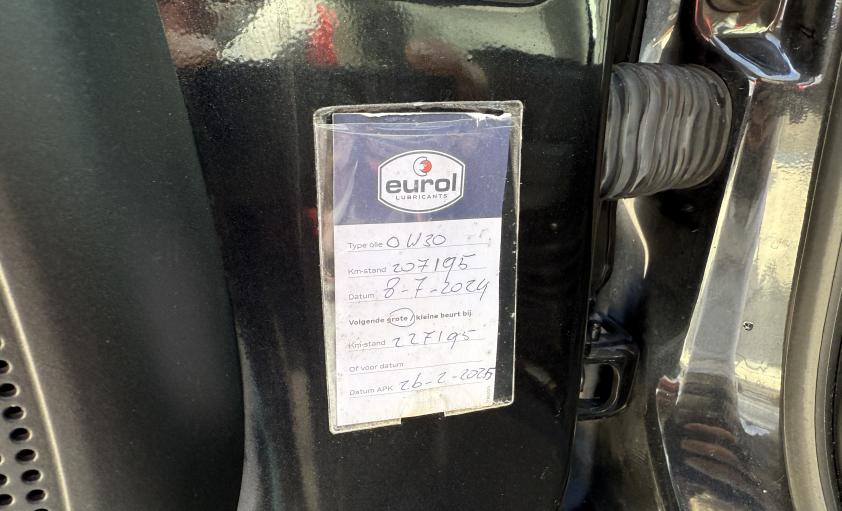 eurol
LUBRICANTS
Type olie 0W30
Km-stand 207195
Datum 8-7-2024
Volgende grote / kleine beurt bij
Km-stand 227195
Of voor datum
Datum APK 26-2-2025